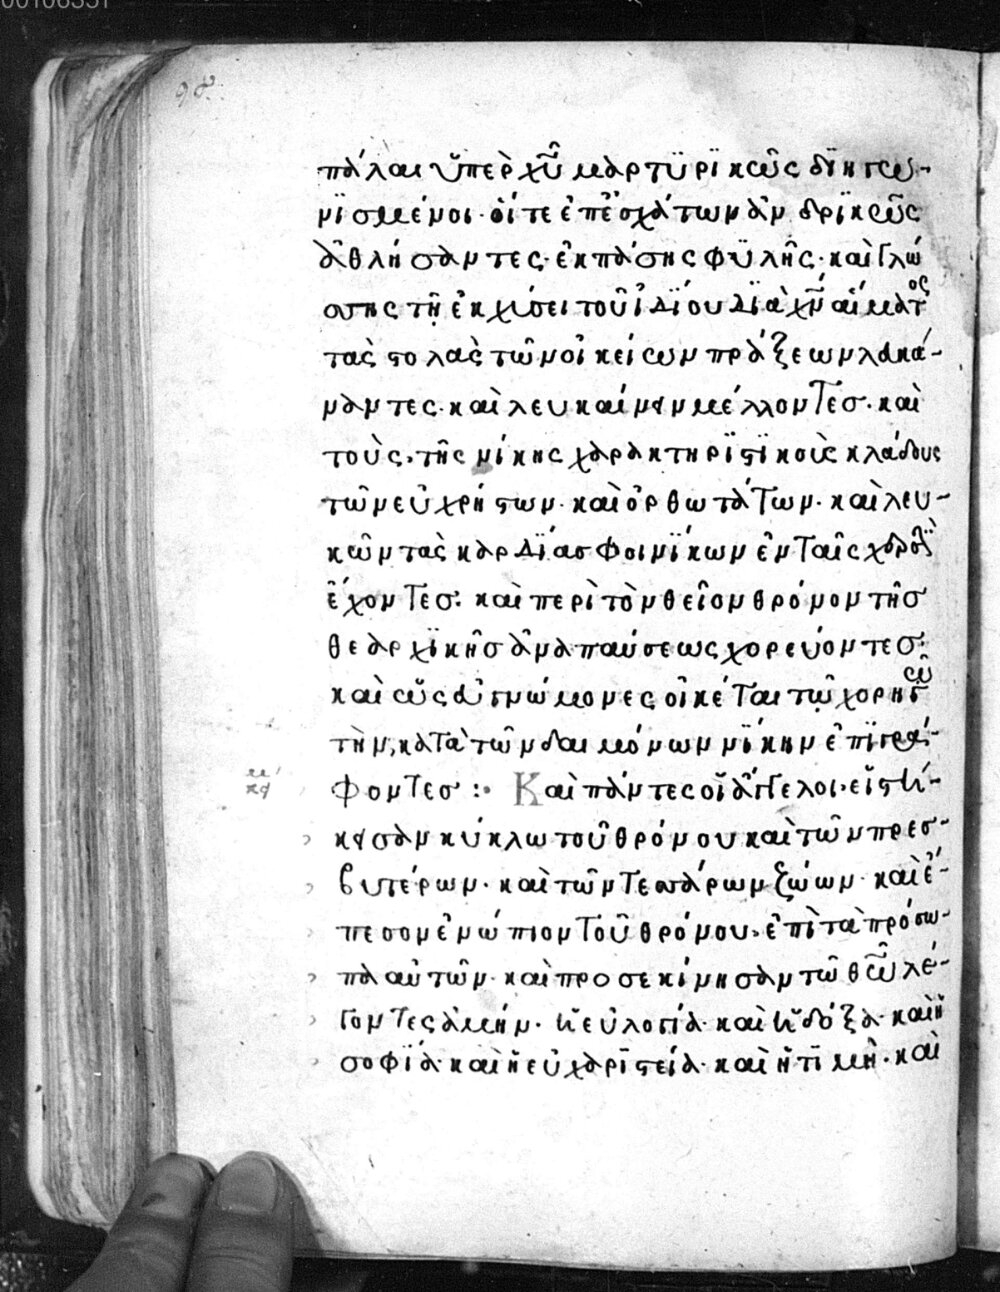 πάλαι ὑπὲρ χῦ μαρτϋρϊκῶς δϊηγω-
νϊσμένοι· οἵ τε ἐπ' ἐσχάτων ἀνδρϊκῶς
ἀθλήσαντες· ἐκ πάσης φϋλῆς· καὶ γλώ
σσης τῇ ἐκχύσει τοῦ ἰδΐου διὰ χῦ αἵματος
τὰς στολὰς τῶν οἰκείων πράξεων λευκά-
ναντες· καὶ λευκαίνειν μέλλοντες· καὶ
τοὺς τῆς νίκης χαρακτηρϊστϊκοὺς κλάδους
τῶν εὐχρήστων· καὶ ὀρθωτάτων· καὶ λευ-
κῶν τὰς καρδΐας φοινΐκων ἐν ταῖς χερσὶ
ἔχοντες· καὶ περὶ τὸν θεῖον θρόνον τῆς
θεαρχϊκῆς ἀναπαύσεως χορεύοντες·
καὶ ὡς εὐγνώμονες οἰκέται τῷ χορηγῷ
τὴν κατὰ τῶν δαιμόνων νΐκην ἐπϊγρά-
φοντες :· Καὶ πάντες οἱ ἄγγελοι· εἱστή-
κεσαν κύκλω τοῦ θρόνου καὶ τῶν πρεσ-
βυτέρων· καὶ τῶν τεσσάρων ζώων· καὶ ἔ-
πεσον ἐνώπιον τοῦ θρόνου· ἐπὶ τὰ πρόσω-
πα αὐτῶν· καὶ προσεκύνησαν τῷ θῶ λέ-
γοντες ἀμήν· ἡ εὐλογία· καὶ ἡ δόξα· καὶ ἡ
σοφΐα καὶ ἡ εὐχαρϊστεία· καὶ ἡ τϊμὴ· καὶ